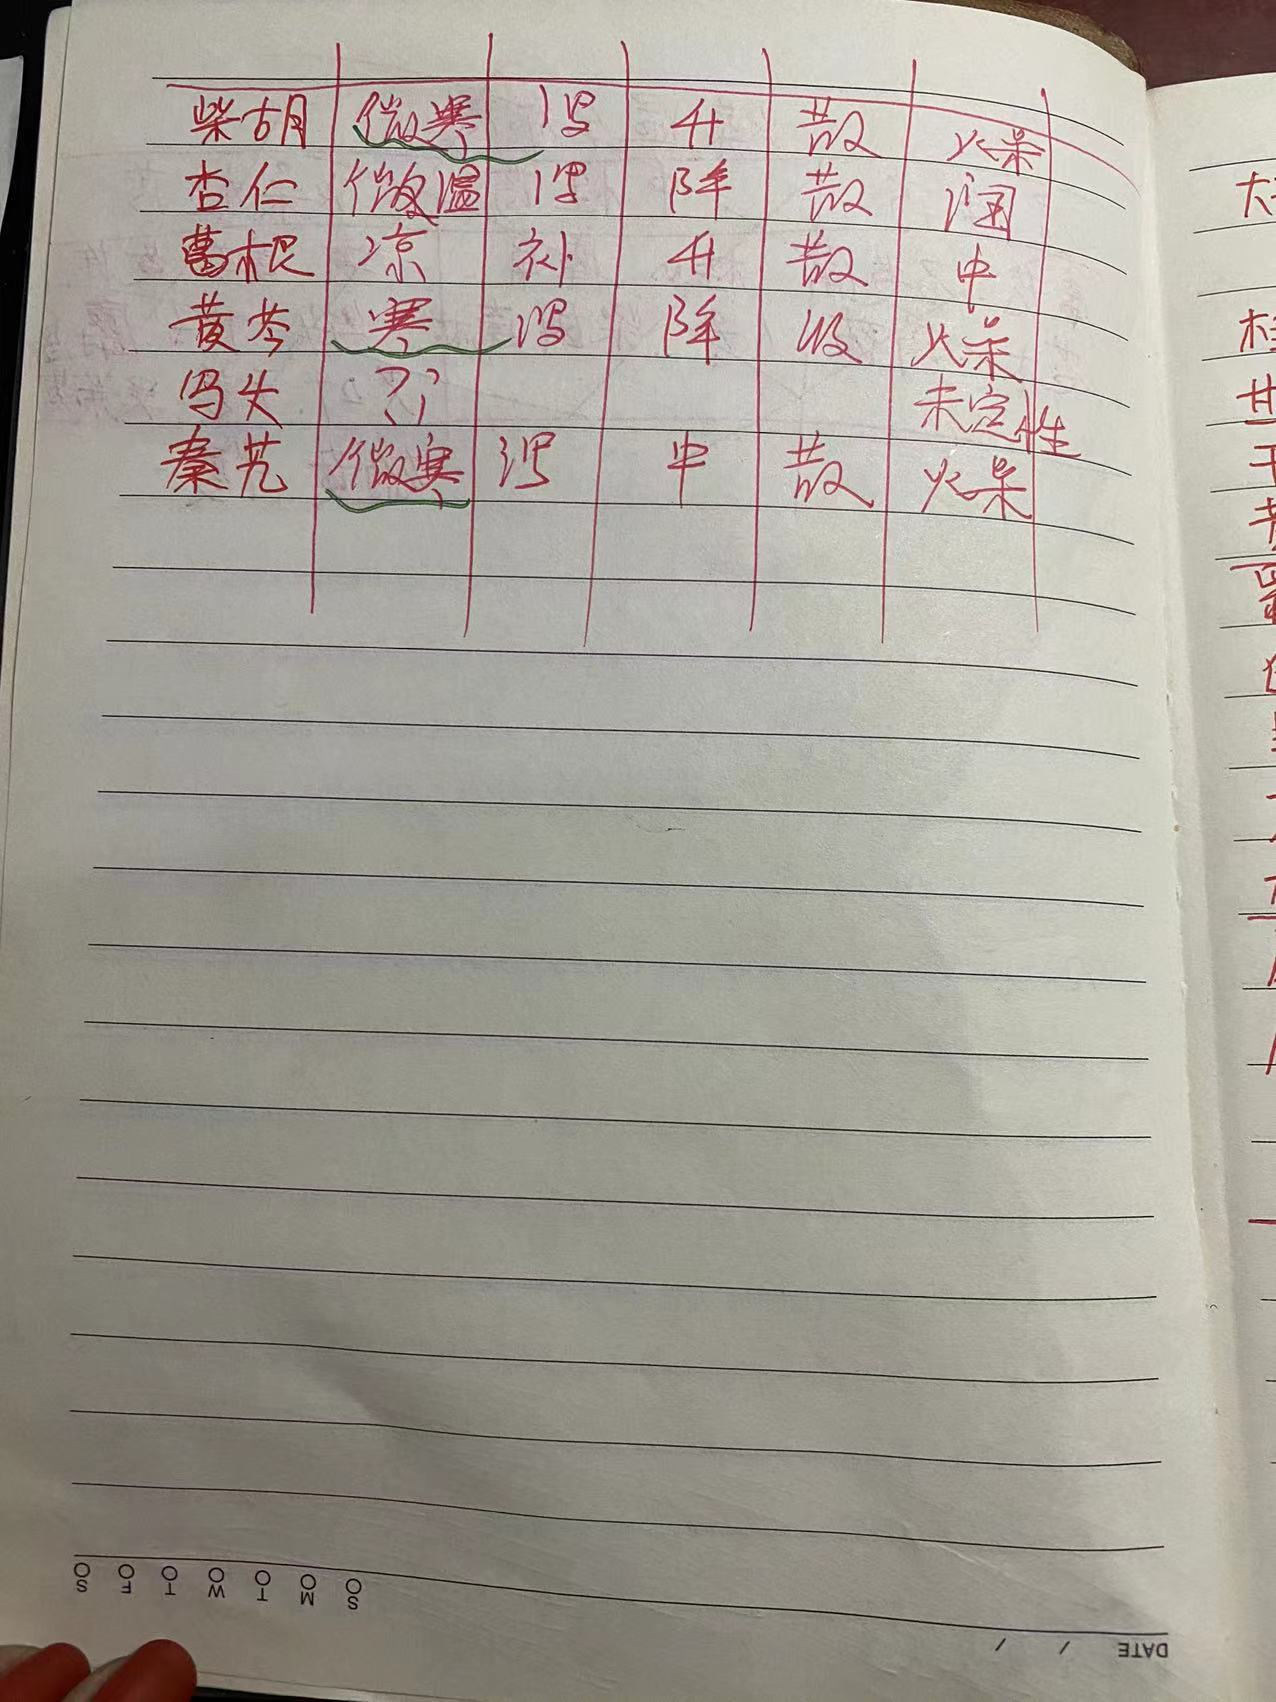 柴胡 微寒 泻 升 散 燥
杏仁 微温 泻 降 散 润
葛根 凉 补 升 散 中
黄芩 寒 泻 降 收 燥
乌头 ?? 未定性
秦艽 微寒 泻 中 散 燥
S M T W T F S
DATE / /